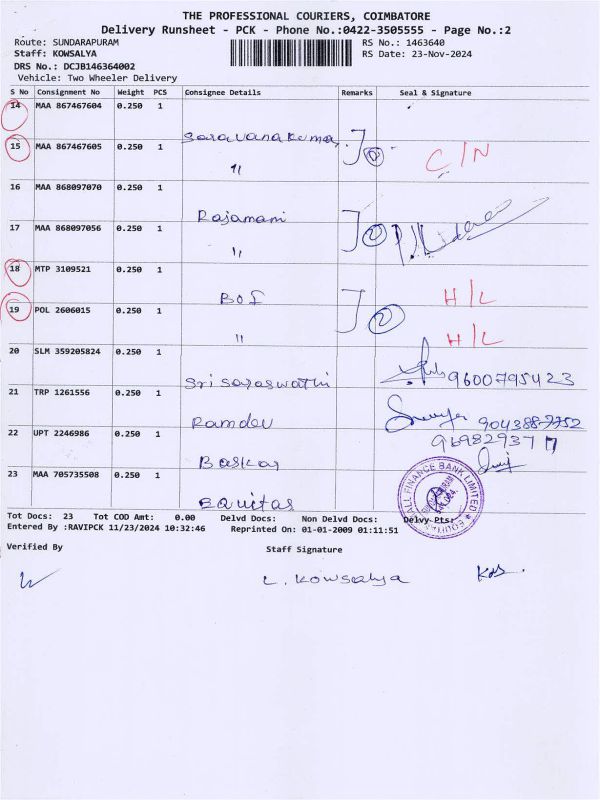 THE PROFESSIONAL COURIERS, COIMBATORE
Delivery Runsheet - PCK - Phone No.:0422-3505555 - Page No.:2
Route: SUNDARAPURAM RS No.: 1463640
Staff: KOWSALYA RS Date: 23-Nov-2024
DRS No.: DCJB146364002
Vehicle: Two Wheeler Delivery
S No Consignment No Weight PCS Consignee Details Remarks Seal & Signature
14 MAA 867467604 0.250 1 Saravanakumar
15 MAA 867467605 0.250 1 " 2 C/N
16 MAA 868097070 0.250 1 Rajamani
17 MAA 868097056 0.250 1 " 2
18 MTP 3109521 0.250 1 BOI H/L
19 POL 2606015 0.250 1 " 2 H/L
20 SLM 359205824 0.250 1 Sri Saraswathi 9600795423
21 TRP 1261556 0.250 1 Ramdev 9043887752
22 UPT 2246986 0.250 1 Baskar
23 MAA 705735508 0.250 1 SMALL FINANCE BANK LIMITED
Tot Docs: 23 Tot COD Amt: 0.00 Delvd Docs: Non Delvd Docs: Delvy Pts:
Entered By :RAVIPCK 11/23/2024 10:32:46 Reprinted On: 01-01-2009 01:11:51
Verified By Staff Signature
L. Kowsalya